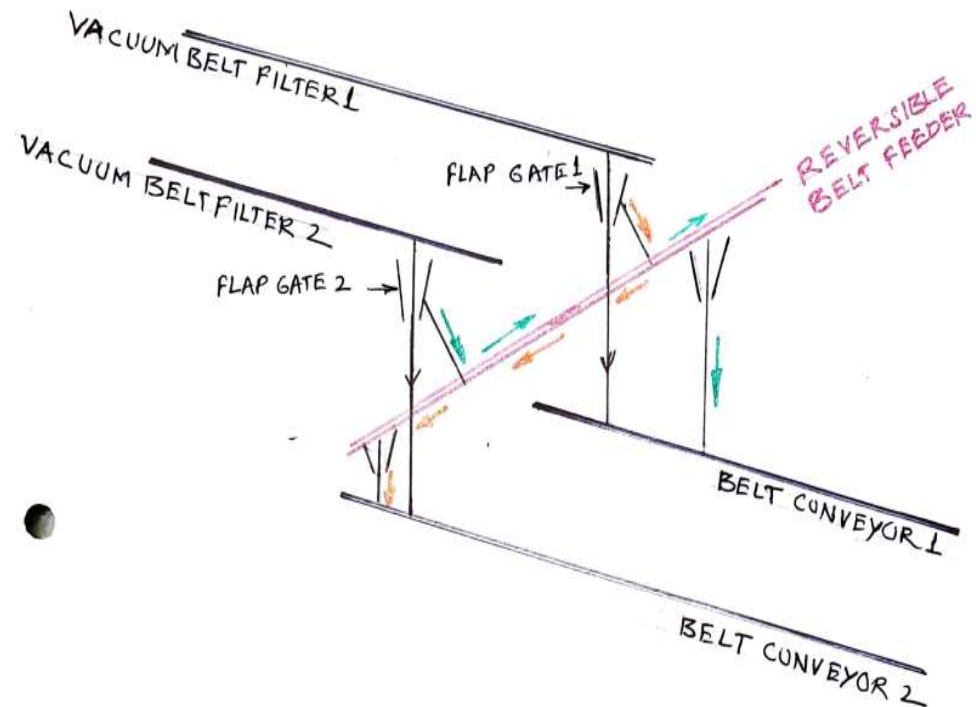 VACUUM BELT FILTER 1
VACUUM BELT FILTER 2
FLAP GATE 1
REVERSIBLE
BELT FEEDER
FLAP GATE 2
BELT CONVEYOR 1
BELT CONVEYOR 2